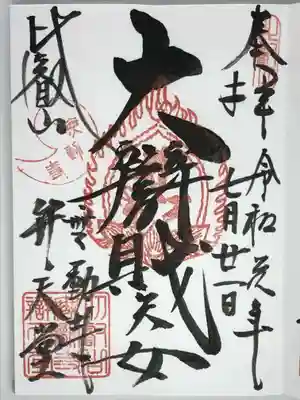 奉拝
令和元年
七月廿一日
大辯財天女
比叡山
無動寺
弁天堂